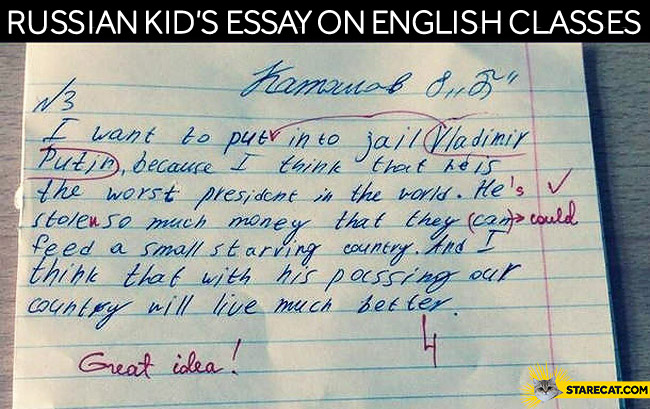 RUSSIAN KID'S ESSAY ON ENGLISH CLASSES
8 „Б"
N3
I want to put into jail Vladimir
Putin, because I think that he is
the worst president in the world. He's
stolen so much money that they (can) could
feed a small starving country. And I
think that with his pocssing our
country will live much better.
Great idea!
4
STARECAT.COM